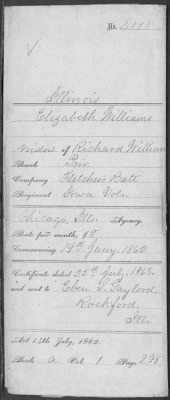 No. 4,195
Illinois
Elizabeth Williams
widow of Richard William
Rank Priv.
Company Fletchers Batt
Regiment Iowa Vols.
Chicago, Ills. Agency.
Rate per month, $8
Commencing 19th Jany. 1862
Certificate dated 25th July, 1863.
and sent to Eben S. Gaylord,
Rockford,
Ills.
Act 14th July, 1862.
Book A Vol. 1 Page 238